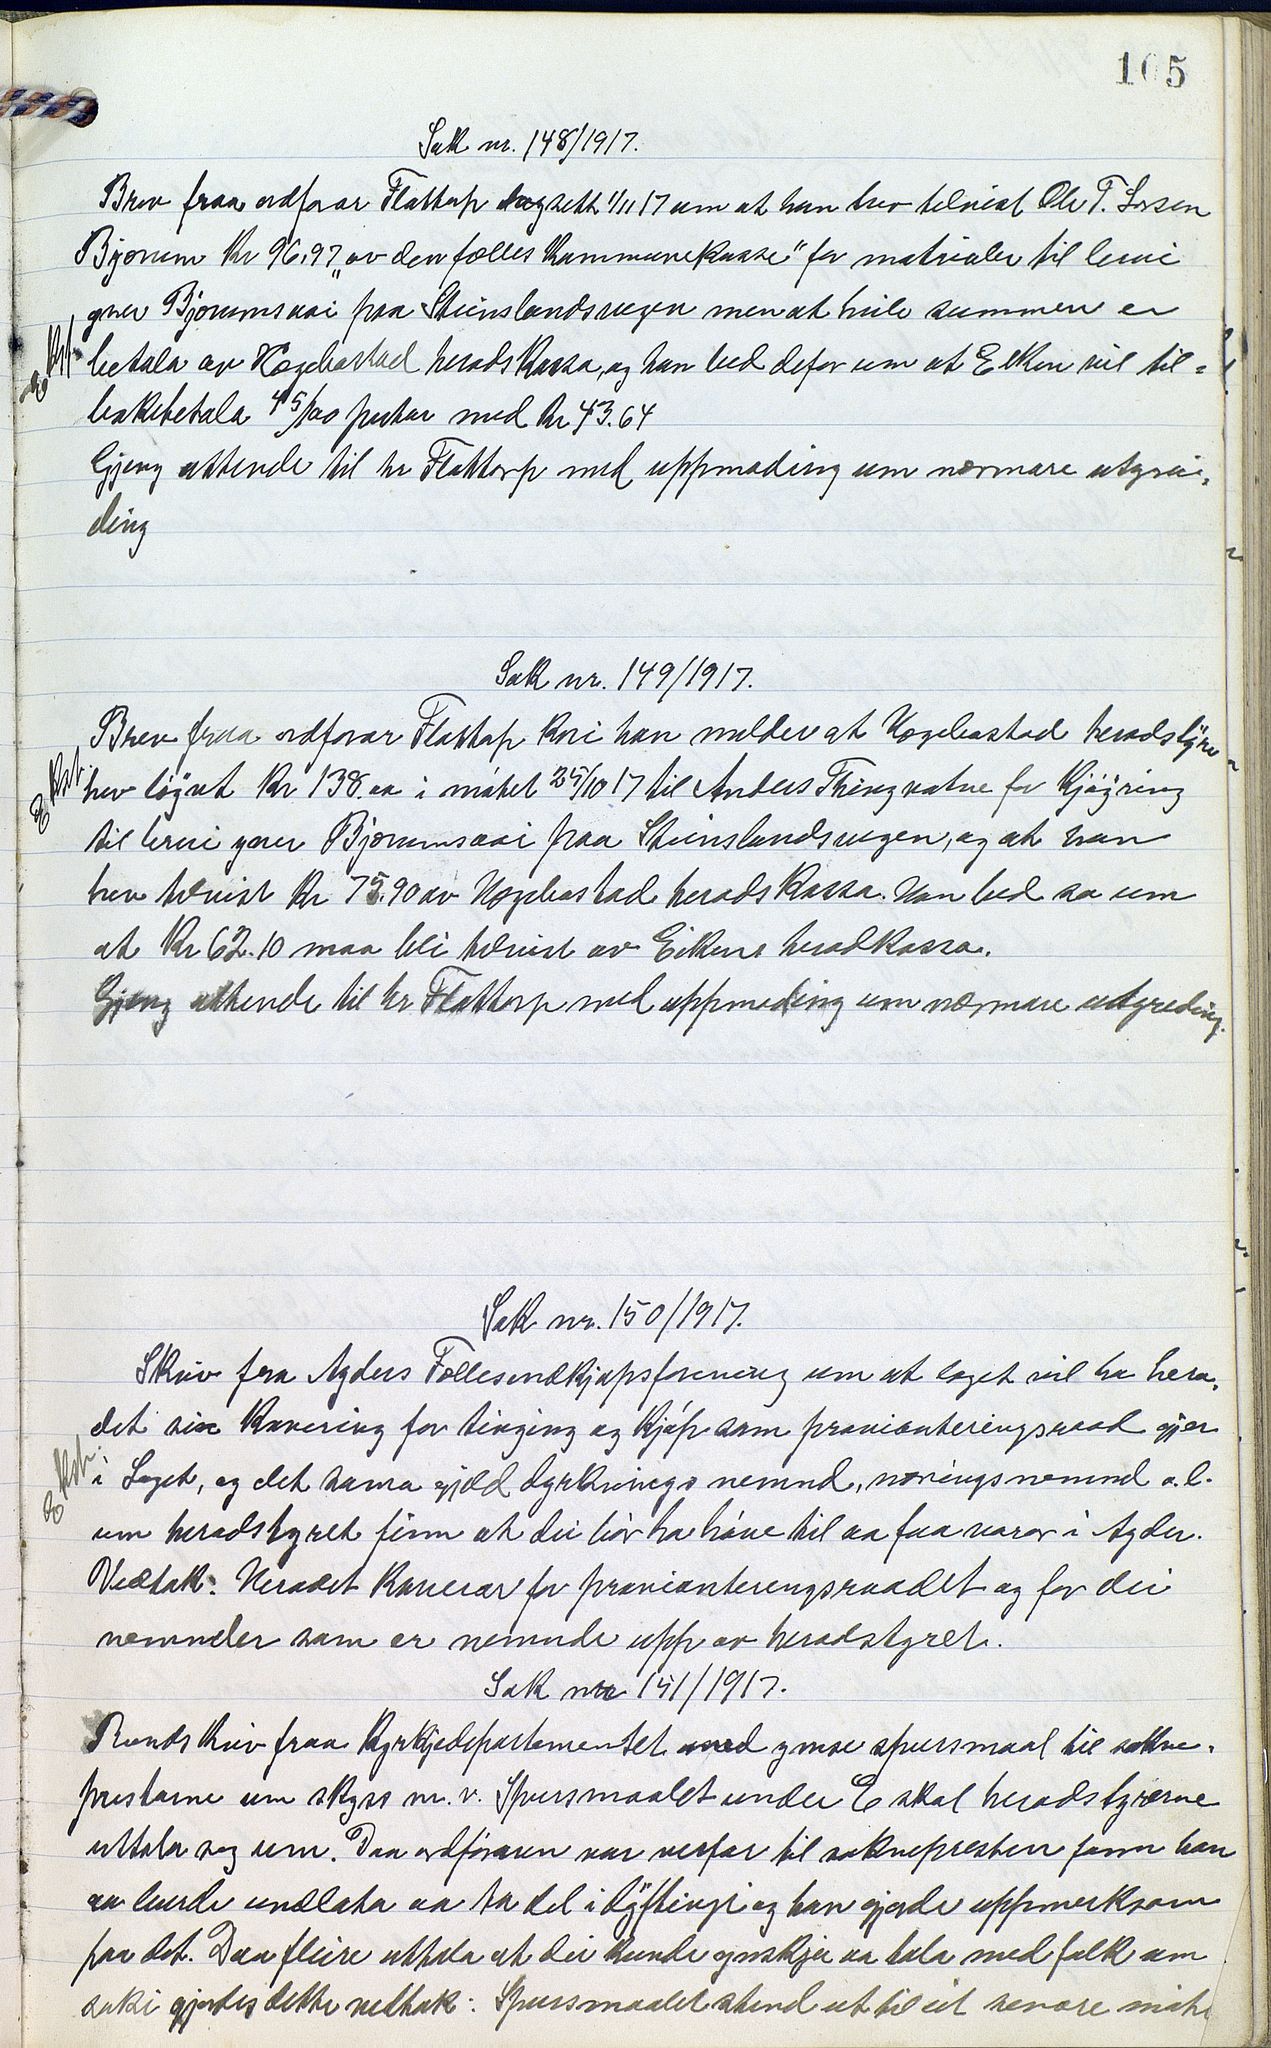 105
Sak nr. 148/1917.
Brev fraa ordførar Flottorp dagsett 1/11 17 um at han hev tilvist Ole T. Lorsen
Bjorum Kr 96,97 "av den fælles kommunekasse" for matrialer til brui
yver Bjorumsaai paa Steinslandsvegen men at heile summen er
E Rst.
betala av Hægebostad heradskassa, og han bed defor um at Eiken vil til=
bakebetala 45/100 partar med Kr 43.64
Gjeng attende til hr Flottorp med uppmoding um nærmare utgrei=
ding
Sak nr. 149/1917.
Brev fraa ordførar Flottorp kori han melder at Hægebostad heradstyre
E Rst.
hev løyvt Kr 138.00 i møtet 25/10 17 til Anders Thingvatne for kjøyring
til brui yver Bjorumsaai paa Steinslandsvegen, og at han
hev tilvist Kr 75.90 av Hægebostad heradskassa. Han bed so um
at Kr 62.10 maa bli tilvist av Eikens heradkassa.
Gjeng attende til hr Flottorp med uppmoding um nærmare utgreding.
Sak nr. 150/1917.
Skriv fra Agders Fællesindkjøpsforening um at laget vil ha hera=
det sin kavering for tinging og kjøp som provianteringsraad gjer
E Rst.
i Laget, og det sama gjeld dyrknings nemnd, næringsnemnd o.l.
um heradstyret finn at dei bør ha høve til aa faa varor i Agder.
Vedtak: Heradet kaverar for provianteringsraadet og for dei
nemnder som er nemnde upp av heradstyret.
Sak nr 151/1917.
Rundskriv fraa Kyrkjedepartementet med ymse spursmaal til sokne=
prestarne um skyss m.v. Spursmaalet under E skal heradstyrerne
uttala seg um. Daa ordføraren var verfar til soknepresten fann han
aa burde undlata aa ta del i dryftingi og han gjorde uppmerksam
paa det. Daa fleire uttala at dei kunde ynskje aa tala med folk um
saki gjordes dette vedtak: Spursmaalet stend ut til eit senare møte